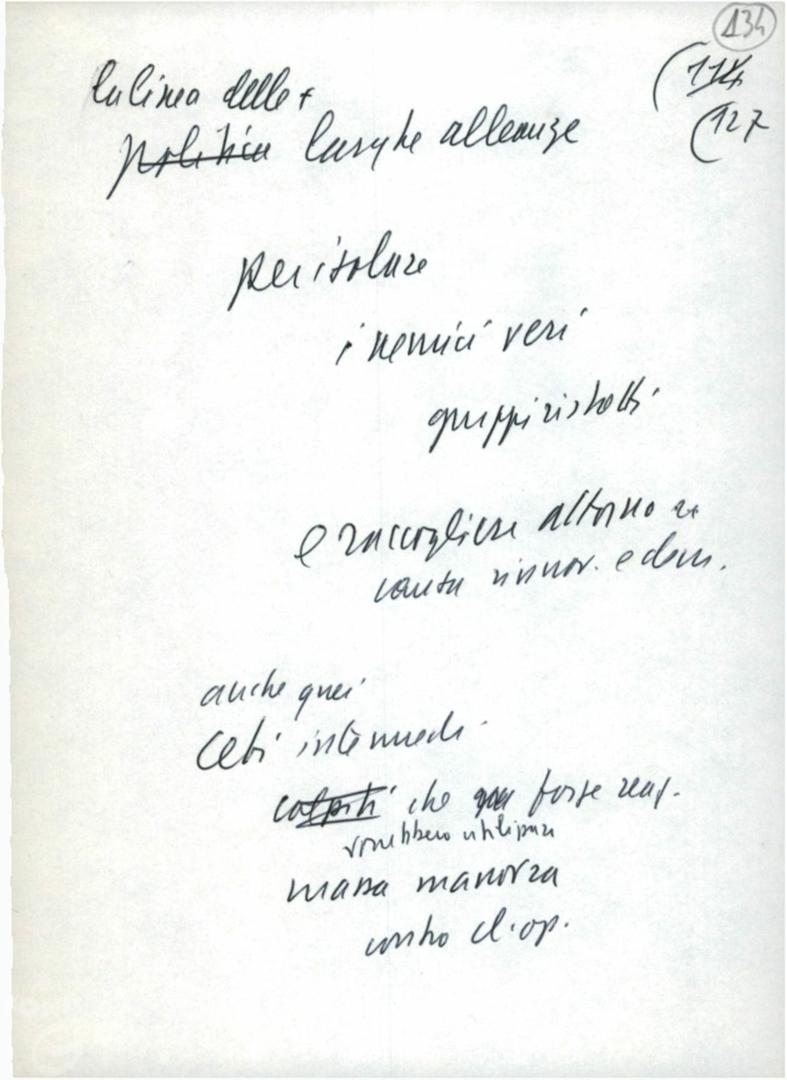 134
(114
(127
la linea delle +
politica larghe alleanze
per isolare
i nemici veri
gruppi ristretti
e raccogliere attorno a
causa rinnov. e dem.
anche quei
Ceti intermedi
colpiti che forze reaz.
vorrebbero utilizzare
massa manovra
contro cl. op.